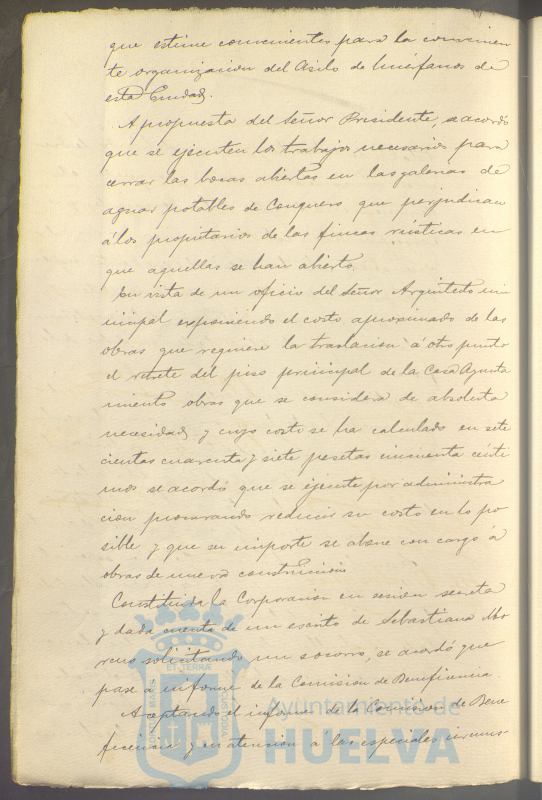 que estime convenientes para la convenien
te organizacion del Asilo de huérfanos de
esta Ciudad.
A propuesta del Señor Presidente, se acordó
que se ejecuten los trabajos necesarios para
cerrar las bocas abiertas en las galerias de
aguas potables de Conquero que perjudican
á los propietarios de las fincas rústicas en
que aquellas se han abierto.
En vista de un oficio del Señor Arquitecto mu
nicipal exponiendo el costo aproximado de las
obras que requiere la traslacion á otro punto
el retrete del piso principal de la Casa Ayunta
miento obras que se considera de absoluta
necesidad y cuyo costo se ha calculado en sete
cientas cuarenta y siete pesetas cincuenta cénti
mos se acordó que se ejecute por administra
cion procurando reducir su costo en lo po
sible y que su importe se abone con cargo á
obras de nueva construccion
Constituida la Corporacion en sesion secreta
y dada cuenta de un escrito de Sebastiana Mo
reno solicitando un socorro, se acordó que
pase á informe de la Comision de Beneficencia.
Aceptando el informe de la Comision de Bene
ficencia y en atencion á las especiales circuns-
Ayuntamiento de
HUELVA